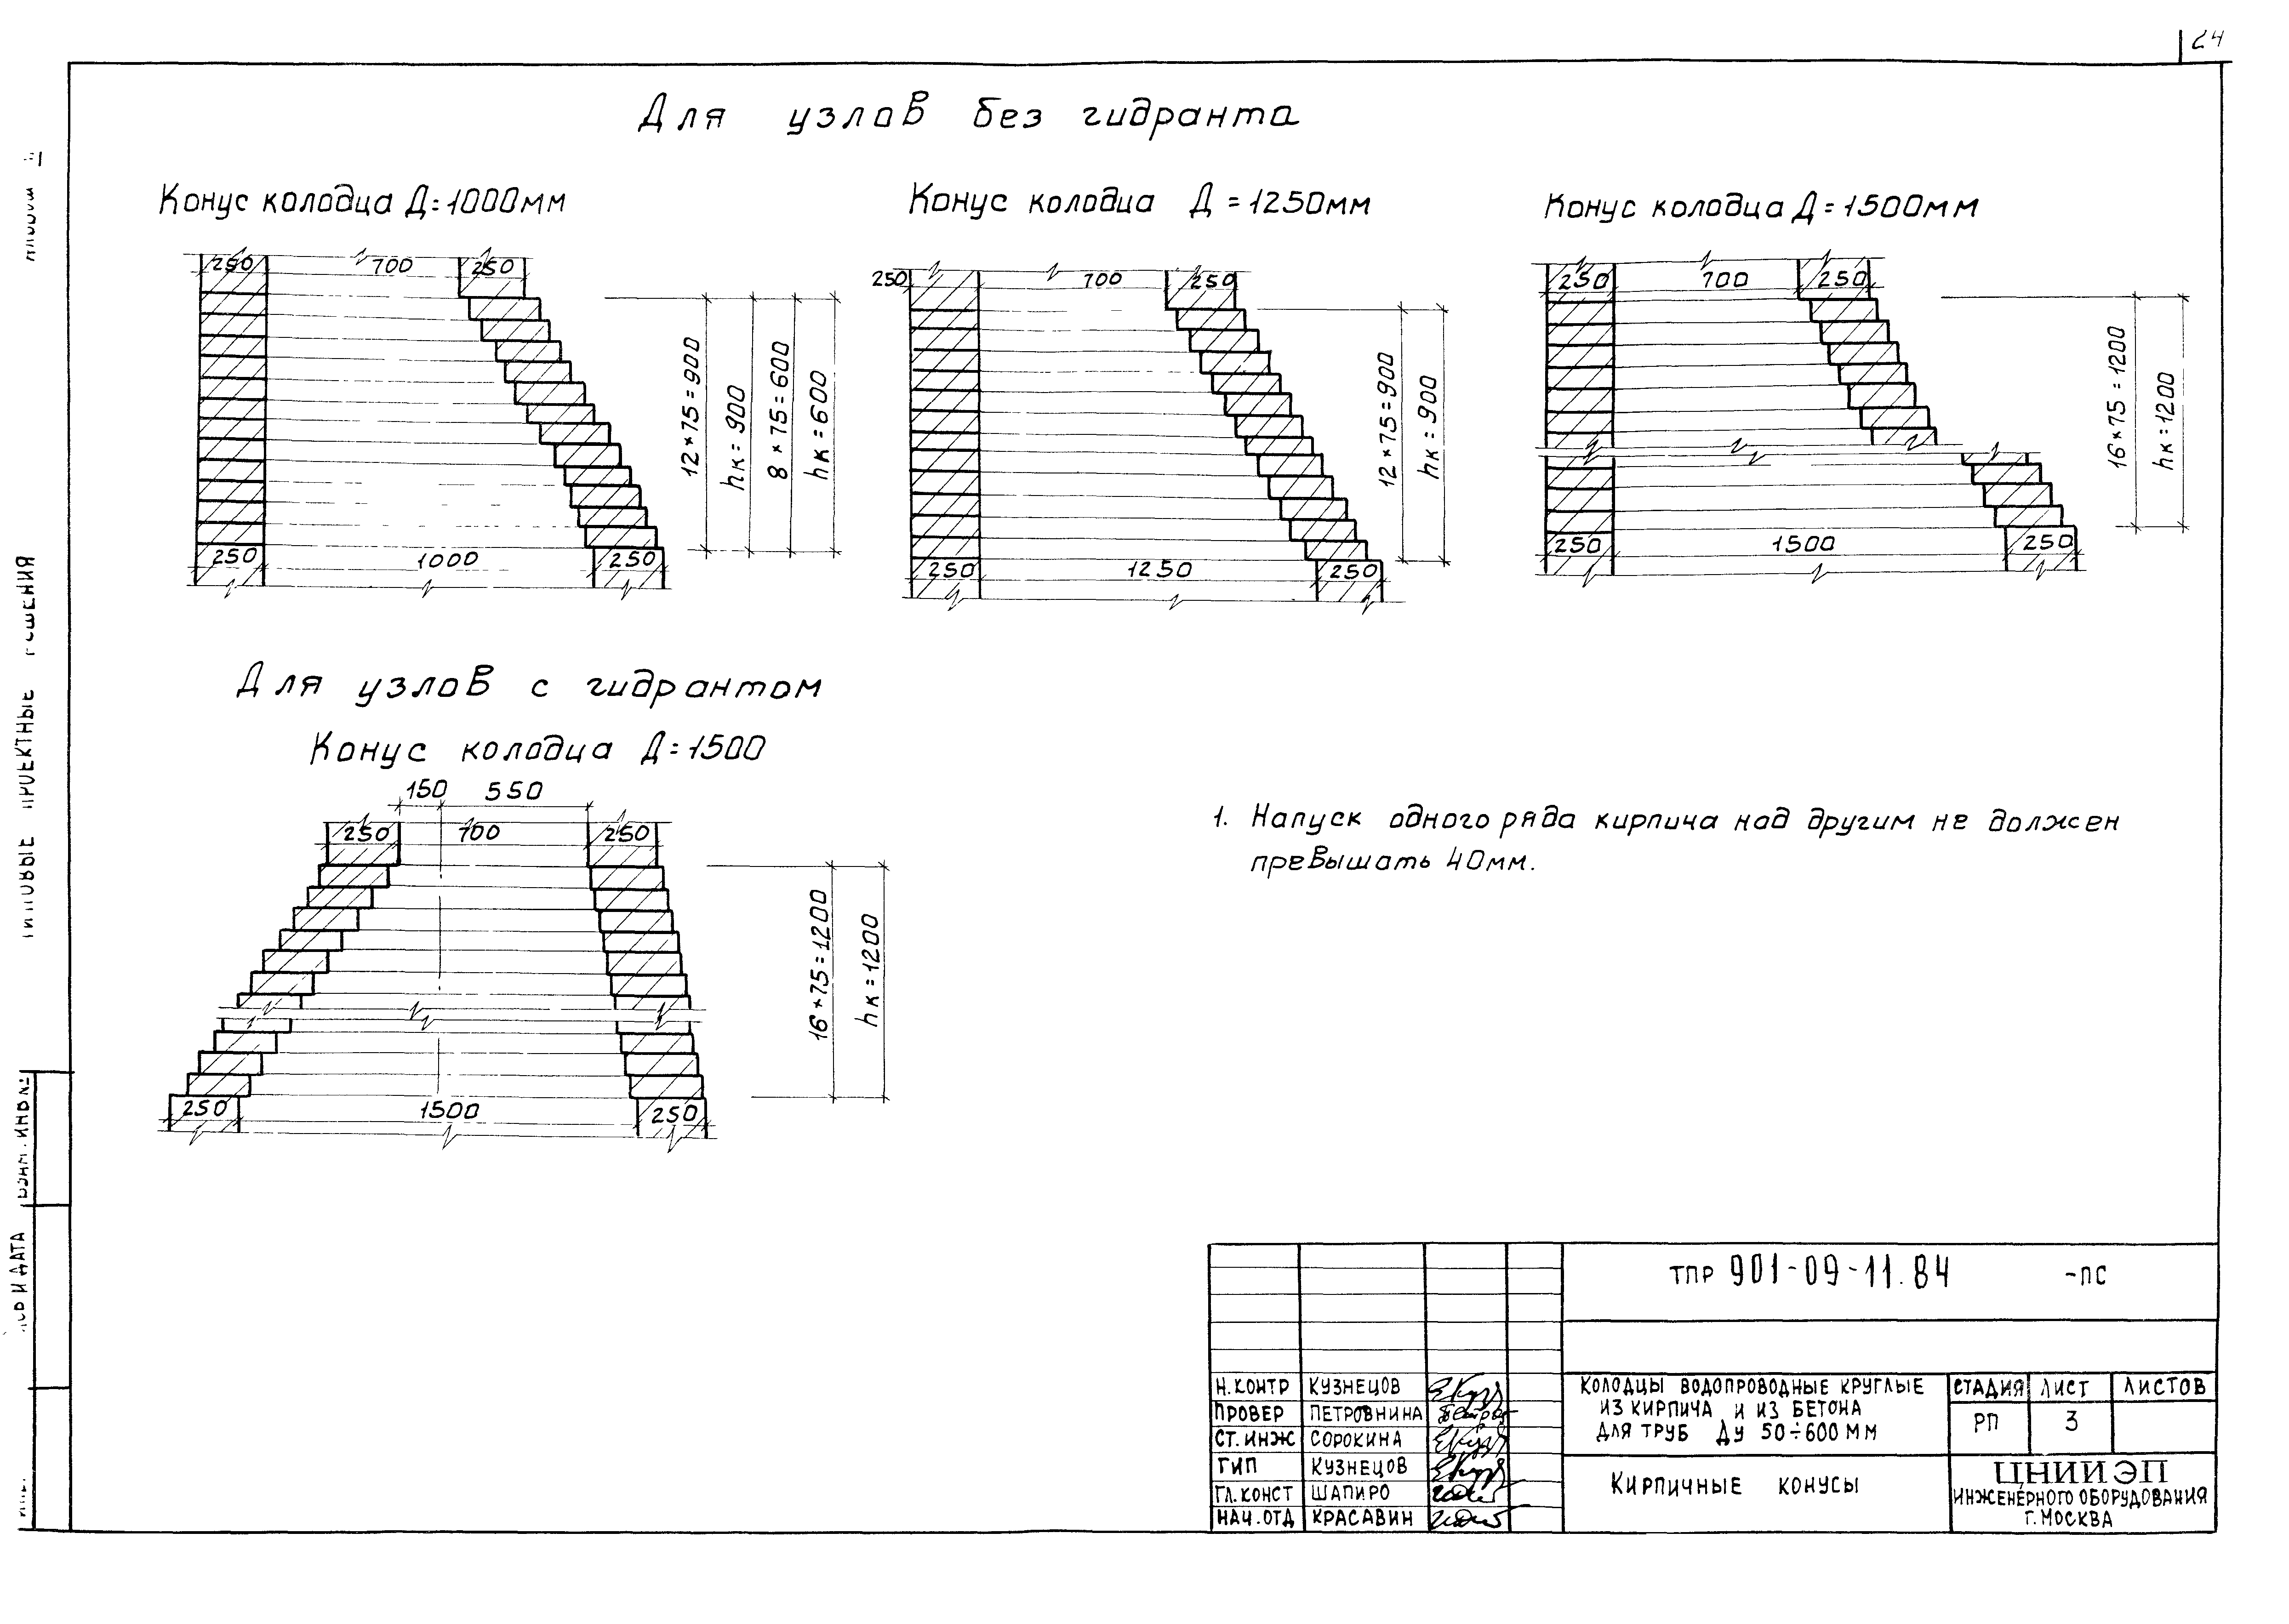 24
Для узлов без гидранта
Конус колодца Д=1000мм
Конус колодца Д=1250мм
Конус колодца Д=1500мм
250 700 250
12×75=900
hк=900
8×75=600
hк=600
250 1000 250
250 700 250
12×75=900
hк=900
250 1250 250
250 700 250
16×75=1200
hк=1200
250 1500 250
Для узлов с гидрантом
Конус колодца Д=1500
150 550
250 700 250
16×75=1200
hк=1200
250 1500 250
1. Напуск одного ряда кирпича над другим не должен
превышать 40мм.
ТПР 901-09-11.84 -ПС
Н.КОНТР КУЗНЕЦОВ
ПРОВЕР ПЕТРОВНИНА
СТ.ИНЖ СОРОКИНА
ГИП КУЗНЕЦОВ
ГЛ.КОНСТ ШАПИРО
НАЧ.ОТД КРАСАВИН
КОЛОДЦЫ ВОДОПРОВОДНЫЕ КРУГЛЫЕ
ИЗ КИРПИЧА И ИЗ БЕТОНА
ДЛЯ ТРУБ ДУ 50÷600 ММ
СТАДИЯ ЛИСТ ЛИСТОВ
РП 3
КИРПИЧНЫЕ КОНУСЫ
ЦНИИЭП
ИНЖЕНЕРНОГО ОБОРУДОВАНИЯ
Г. МОСКВА
ТИПОВЫЕ ПРОЕКТНЫЕ РЕШЕНИЯ
И ДАТА